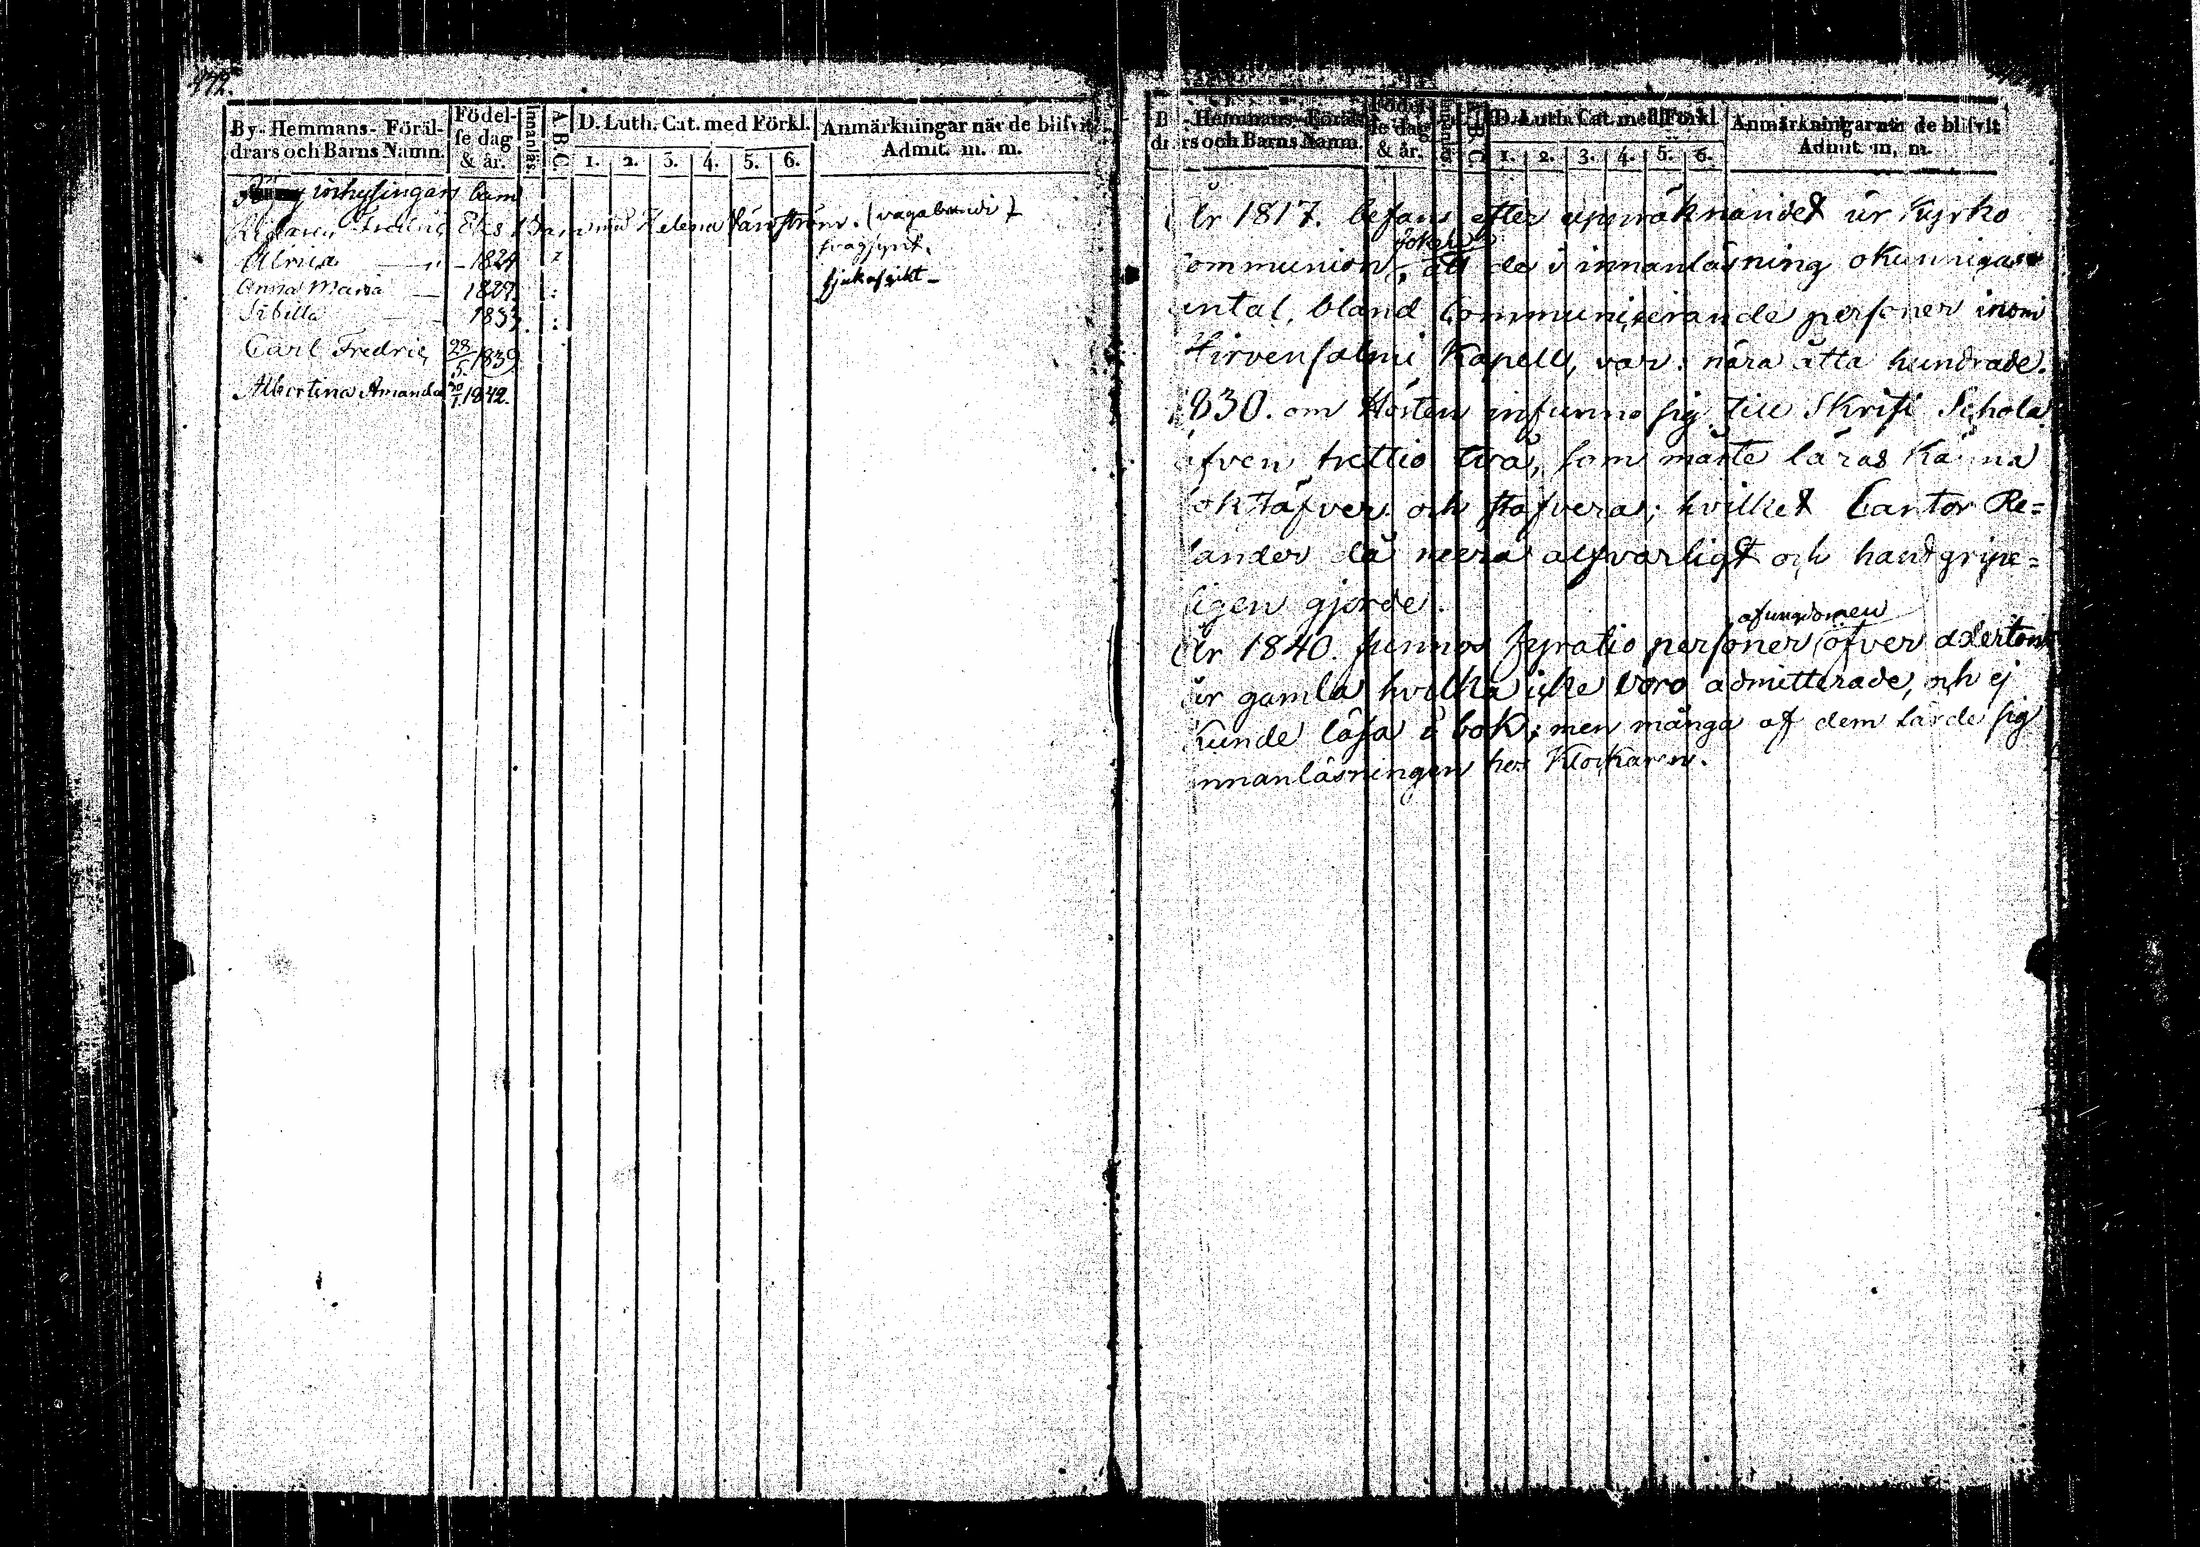 472.
By- Hemmans- Föräl-
drars och Barns Namn.
Födel-
se dag
& år.
Innanläs.
A. B. C.
D. Luth. Cat. med Förkl.
1. 2. 3. 4. 5. 6.
Anmärkningar när de blifvit
Admit. m. m.
inhysingars barn
Fredric Ekst Helena (vagabunde)
Ulrica — " — 1824 svagsynt.
Anna Maria — 1827. sjukosigkt —
Sibilla — 1833.
Carl Fredric 28/5. 1839
Albertina Amanda 20/1. 1842.
Hemmans- Föräl
rs och Barns Namn.
Födel-
se dag
& år.
A. B. C.
D. Luth. Cat. med Förkl.
1. 2. 3. 4. 5. 6.
Anmärkningar när de blifvit
Admit. m. m.
År 1817. befans efter uppräknandet ur Kyrko
ommunion, att de i innanläsning okunnigas
antal, bland Communicerande personer inom
Hirvensalmi Kapell, var: nära åtta hundrade.
1830. om Hösten infunno sig till Skrift Schola
äfven trettio två, som måste läras känna
bokstäfver och stafvera; hvilket Cantor Re=
lander då meera alfvarligt och handgripe=
ligen gjorde.
af ungdomen
År 1840. funnos fyratio personer öfver aderton
år gamla hvilka icke voro admitterade, och ej
kunde läsa i bok; men många af dem lärde sig
innanläsningen hos Klockaren.